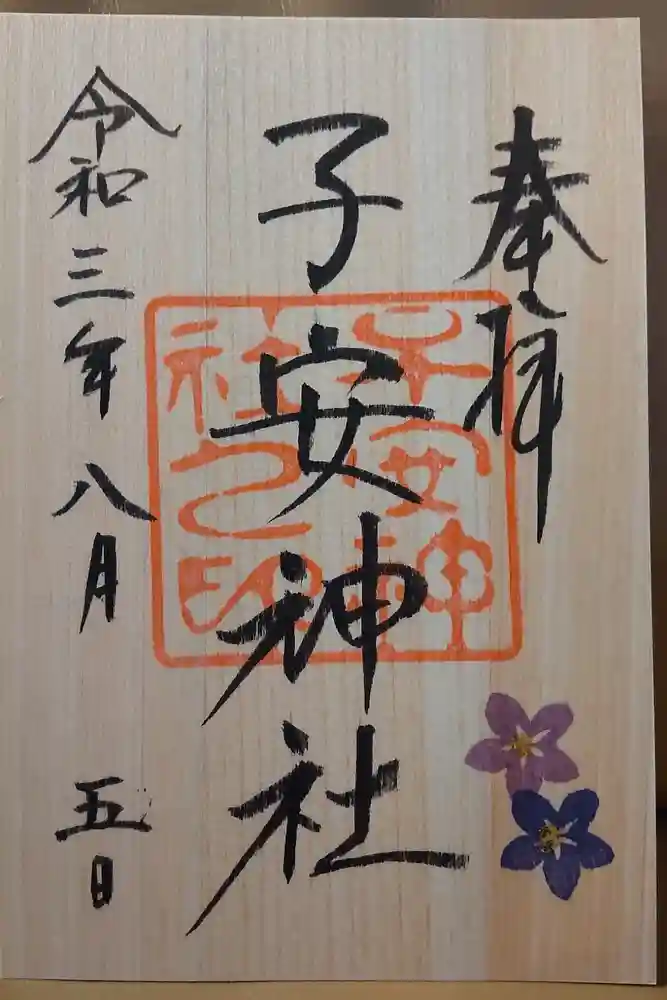 奉拝
子安神社
子安神
社之印
令和三年八月 五日